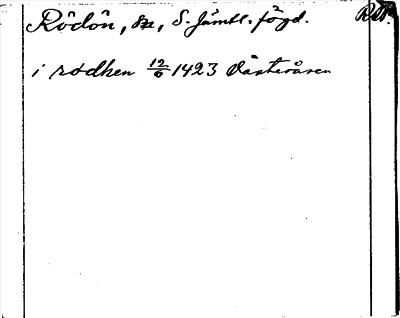 Rödön, sn, S. Jämtl. fögd.
i rödhen 12/6 1423 Västeråsen